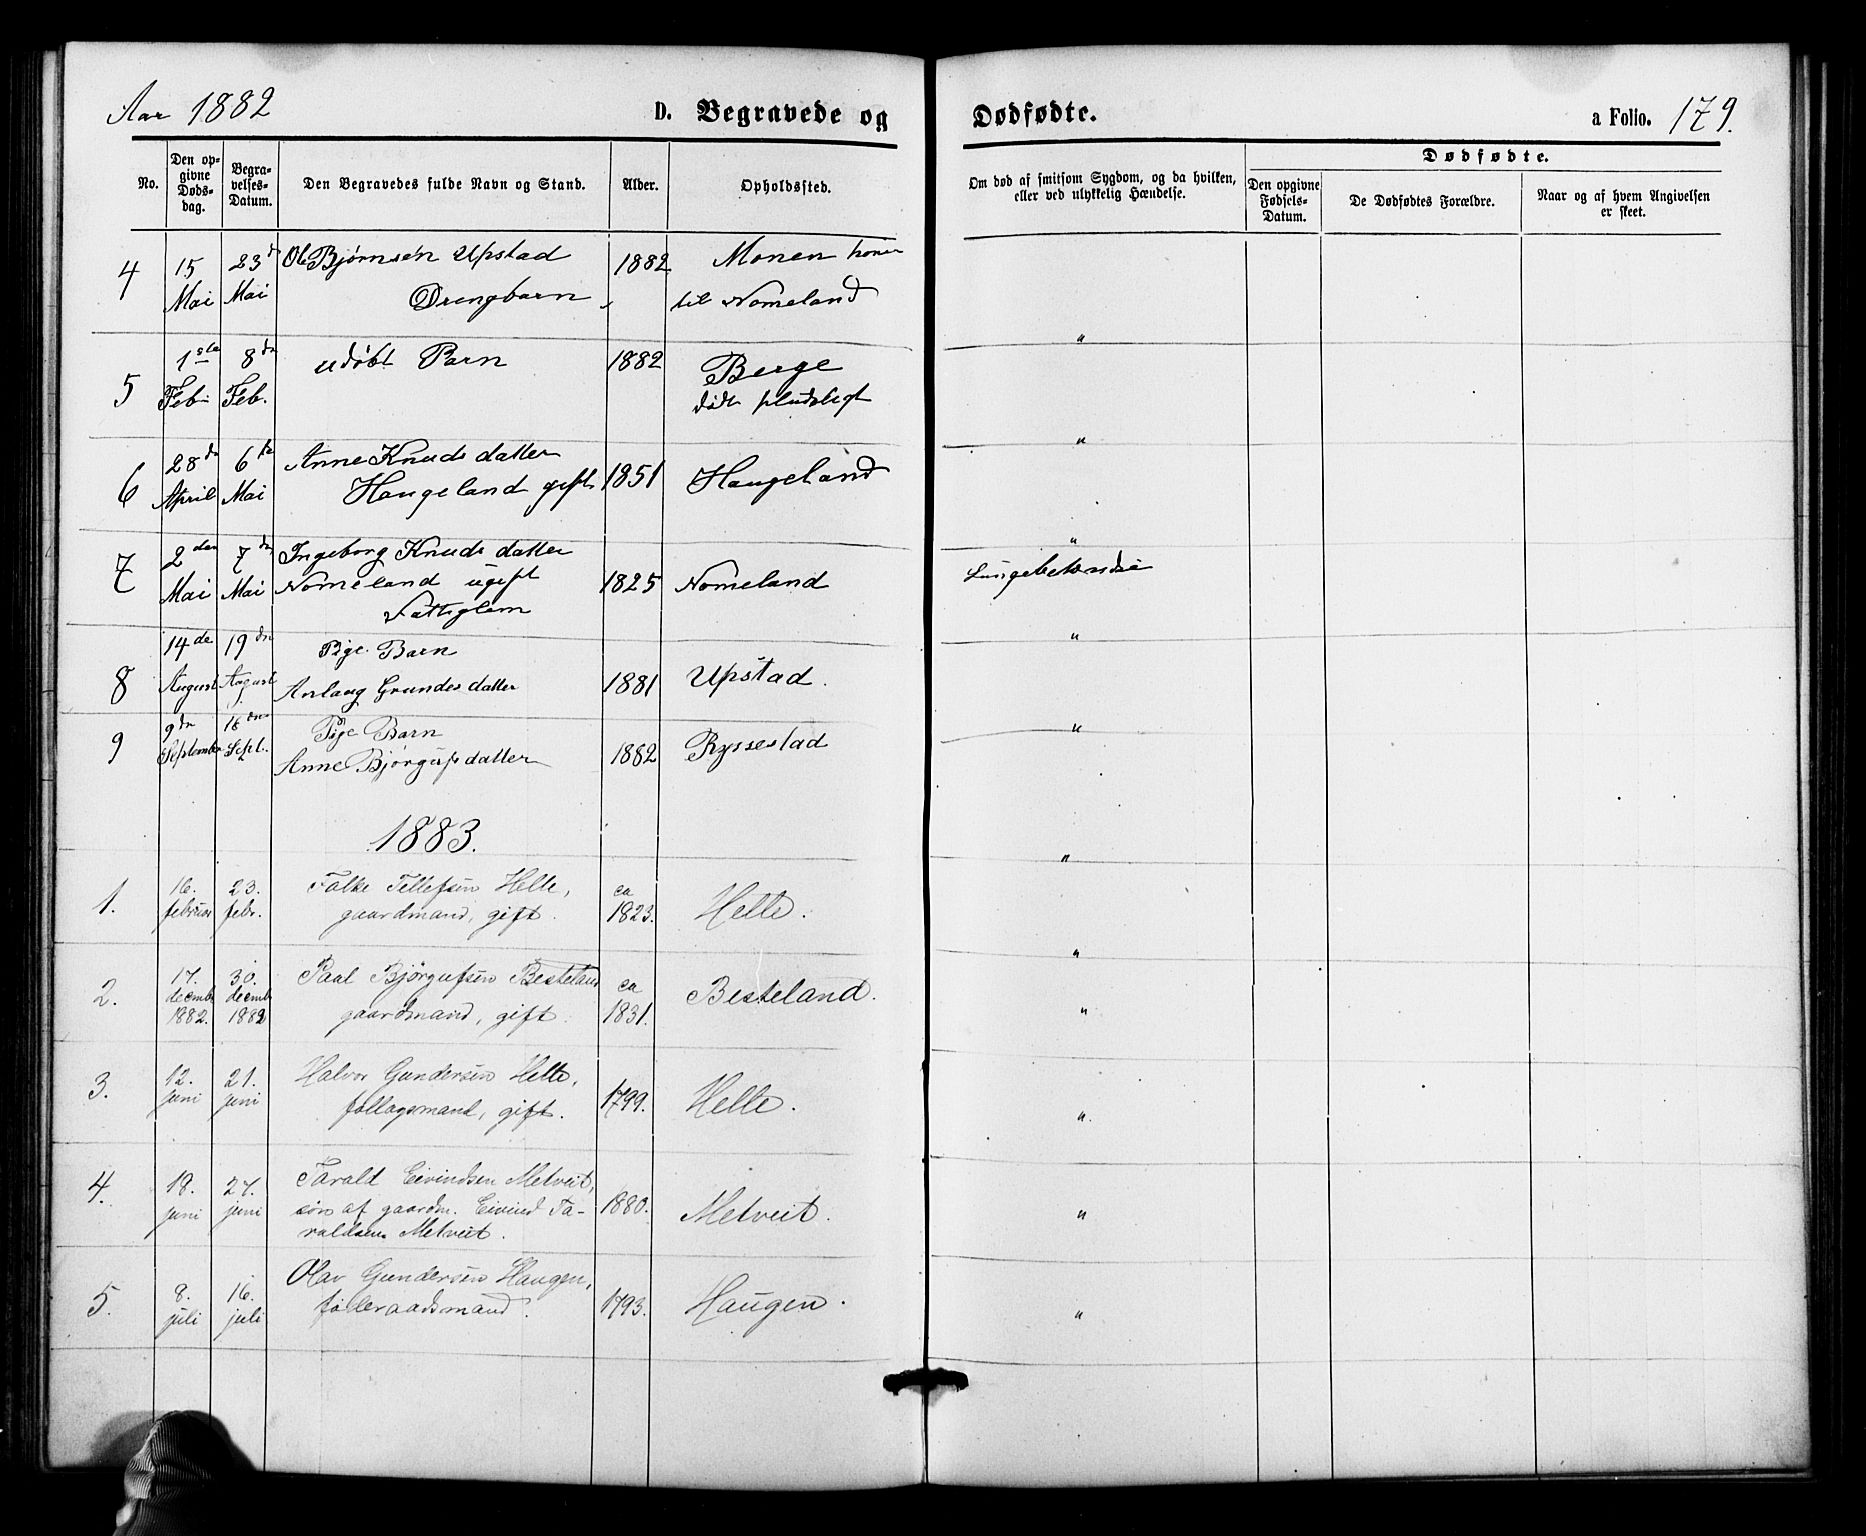 Aar 1882 D. Begravede og Dødfødte. a Folio. 179.
No. Den opgivne Dødsdag. Begravelses-Datum. Den Begravedes fulde Navn og Stand. Alder. Opholdssted. Om død af smitsom Sygdom, og da hvilken, eller ved ulykkelig Hændelse. Dødfødte. Den opgivne Fødsels-Datum. De Dødfødtes Forældre. Naar og af hvem Angivelsen er skeet.
4 15 Mai 23d Mai Ol Bjørnsen Upstad 1882 Monen
Drengbarn til Nomeland "
5 1ste Feb. 8de Feb. udøbt Barn 1882 Berge
døde pludsligt "
6 28de April 6te Mai Anne Knudsdatter 1851 Haugeland
Haugeland gift "
7 2den Mai 7de Mai Ingeborg Knudsdatter
Nomeland ugift 1825 Nomeland Lungebetændse
Fattiglem "
8 14de August 19de August Pige Barn
Anlaug Grundesdatter 1881 Upstad. "
9 9de September 16de Sept. Pige Barn
Anne Bjørgufsdatter 1882 Ryssestad
1883.
"
1. 16. februar 23. febr. Folke Tellefsen Helle,
gaardmand, gift. ca 1823. Helle. "
2. 17. decemb 1882. 30. decemb 1882 Paal Bjørgufsen Besteland
gaardmand, gift. ca 1831. Besteland. "
3. 12. juni 21. juni Halvor Gundersen Helle,
follagsmand, gift. 1799. Helle. "
4. 18. juni 27. juni Tarald Eivindsen Metveit,
søn af gaardm. Eivind Ta- 1880. Metveit. "
raldsen Metveit.
5. 8. juli 16. juli Olav Gundersen Haugen,
føderaadsmand. 1793. Haugen. "